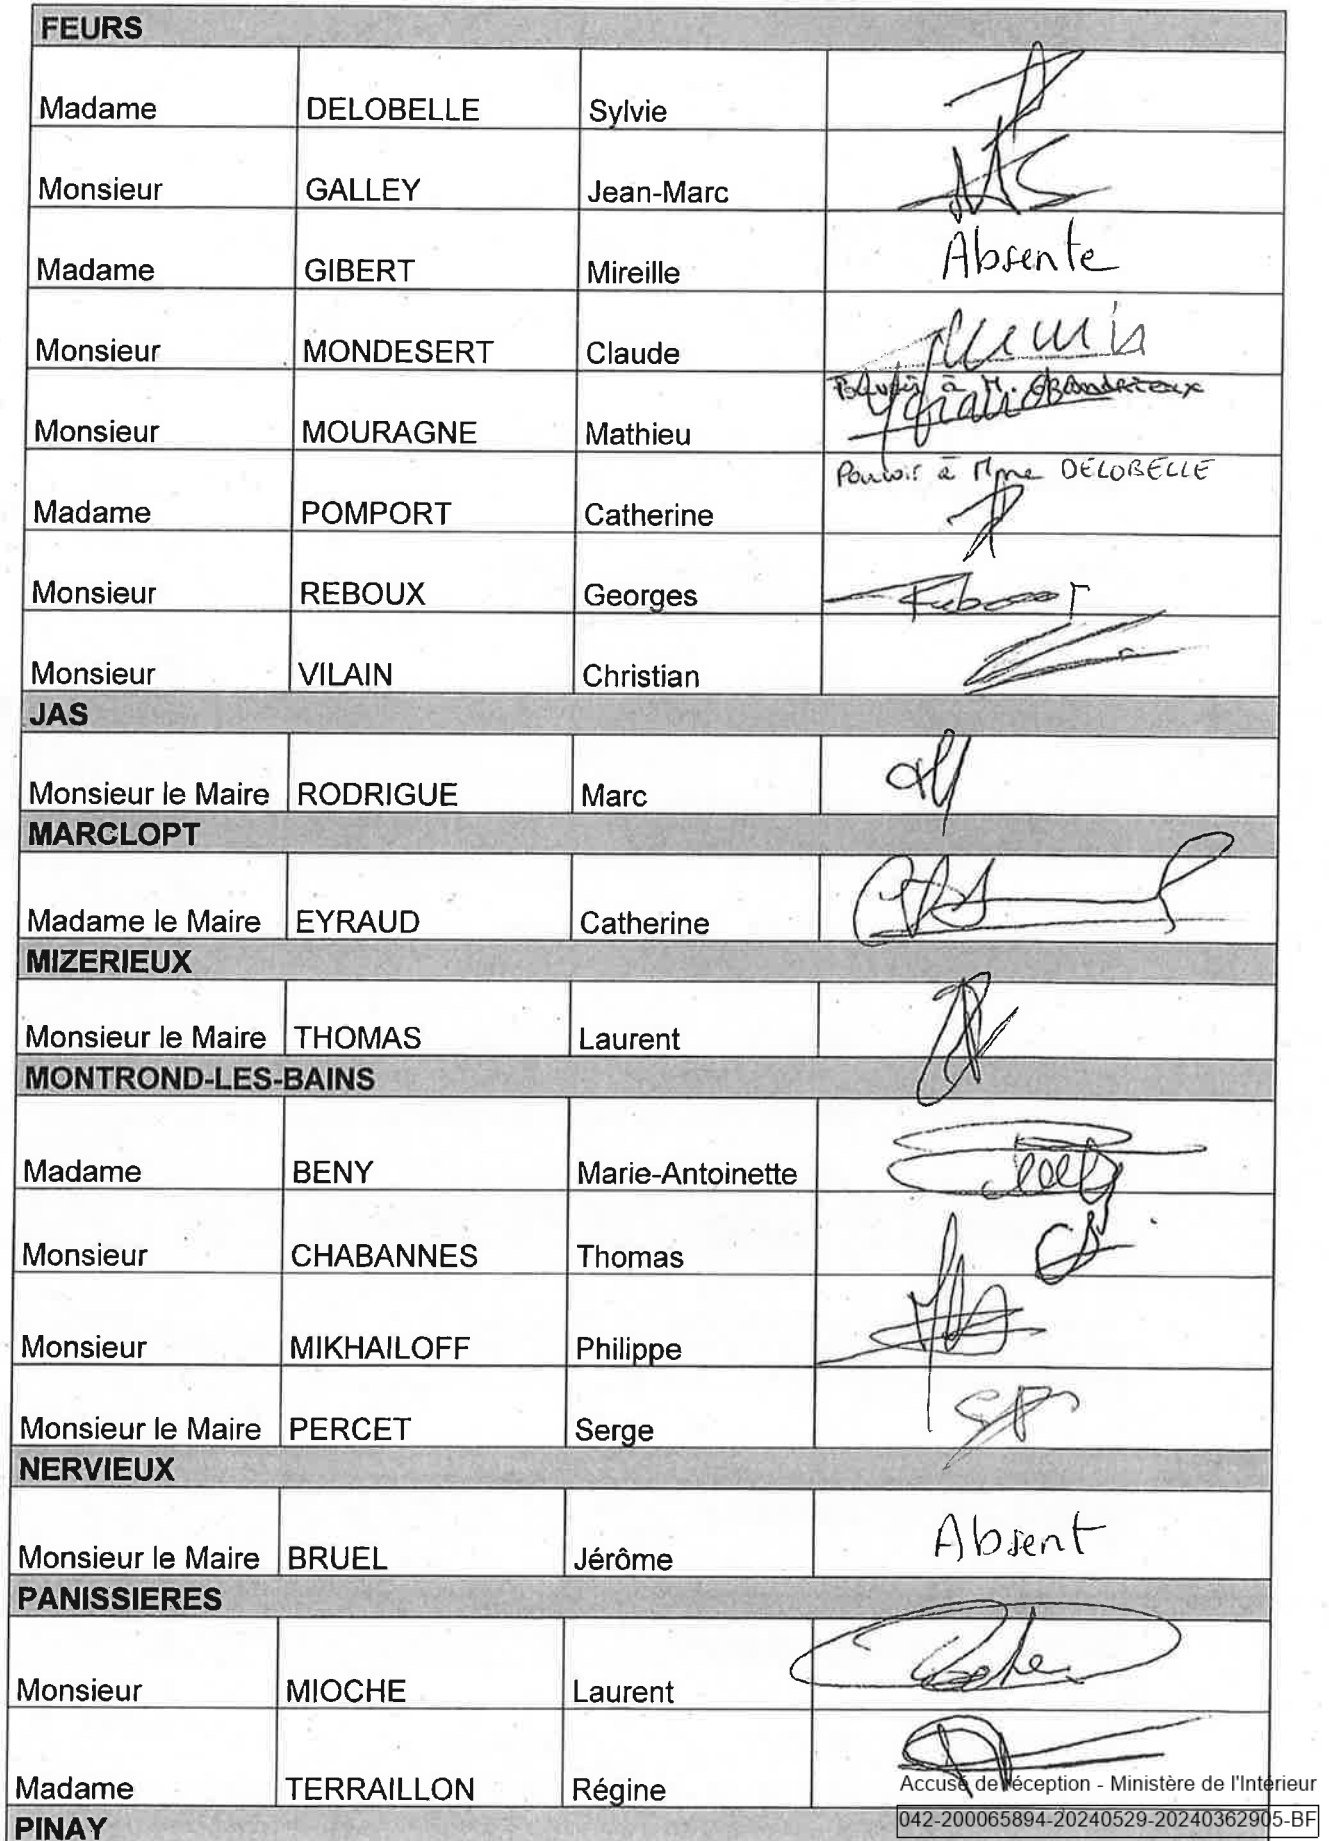 FEURS
Madame DELOBELLE Sylvie
Monsieur GALLEY Jean-Marc
Madame GIBERT Mireille Absente
Monsieur MONDESERT Claude
Pouvoir à M. GRANDRIEUX
Monsieur MOURAGNE Mathieu
Pouvoir à Mme DELOBELLE
Madame POMPORT Catherine
Monsieur REBOUX Georges
Monsieur VILAIN Christian
JAS
Monsieur le Maire RODRIGUE Marc
MARCLOPT
Madame le Maire EYRAUD Catherine
MIZERIEUX
Monsieur le Maire THOMAS Laurent
MONTROND-LES-BAINS
Madame BENY Marie-Antoinette
Monsieur CHABANNES Thomas
Monsieur MIKHAILOFF Philippe
Monsieur le Maire PERCET Serge
NERVIEUX
Monsieur le Maire BRUEL Jérôme Absent
PANISSIERES
Monsieur MIOCHE Laurent
Madame TERRAILLON Régine
Accusé de réception - Ministère de l'Intérieur
042-200065894-20240529-20240362905-BF
PINAY